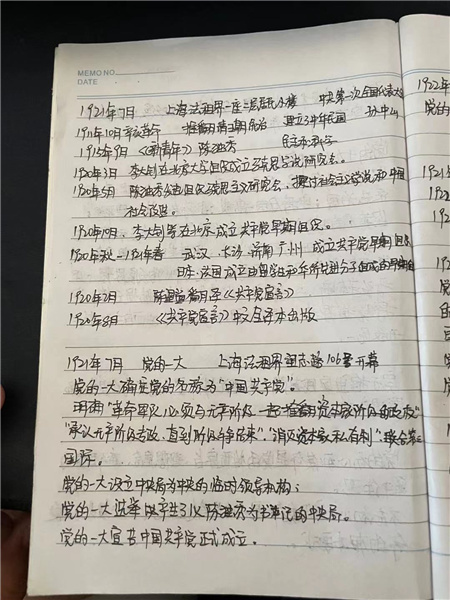 MEMO NO.
DATE
1921年7月 上海法租界一座二层居民小楼 中共第一次全国代表大
1911年10月辛亥革命 推翻清王朝统治 建立中华民国 孙中山
1915年9月《新青年》陈独秀 民主和科学
1920年3月 李大钊在北京大学组织成立马克思学说研究会。
1920年5月 陈独秀发起组织马克思主义研究会,探讨社会主义学说和中国
社会改造。
1920年10月,李大钊等在北京成立共产党早期组织。
1920年秋—1921年春 武汉、长沙、济南、广州 成立共产党早期组织
日本、法国成立由留学生和华侨先进分子组成的早期组织
1920年2月 陈望道翻译《共产党宣言》
1920年8月 《共产党宣言》中文全译本出版
1921年7月 党的一大 上海法租界望志路106号开幕
党的一大确定党的名称为“中国共产党”。
明确“革命军队必须与无产阶级一起推翻资本家阶级的政权”
“承认无产阶级专政,直到阶级斗争结束”“消灭资本家私有制”联合第三
国际。
党的一大设立中央局为中央的临时领导机构;
党的一大选举产生了以陈独秀为书记的中央局。
党的一大宣告中国共产党正式成立。
1922年
党的